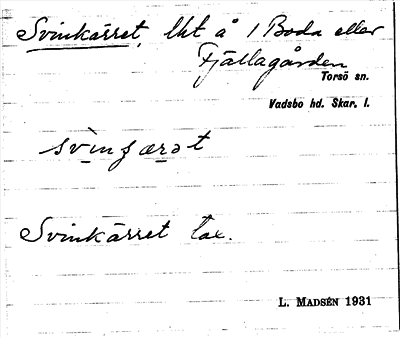 Svinkärret, lht å 1 Boda eller
Fjällagården
Torsö sn.
Vadsbo hd. Skar. l.
Svinkärret tax.
L. MADSÉN 1931